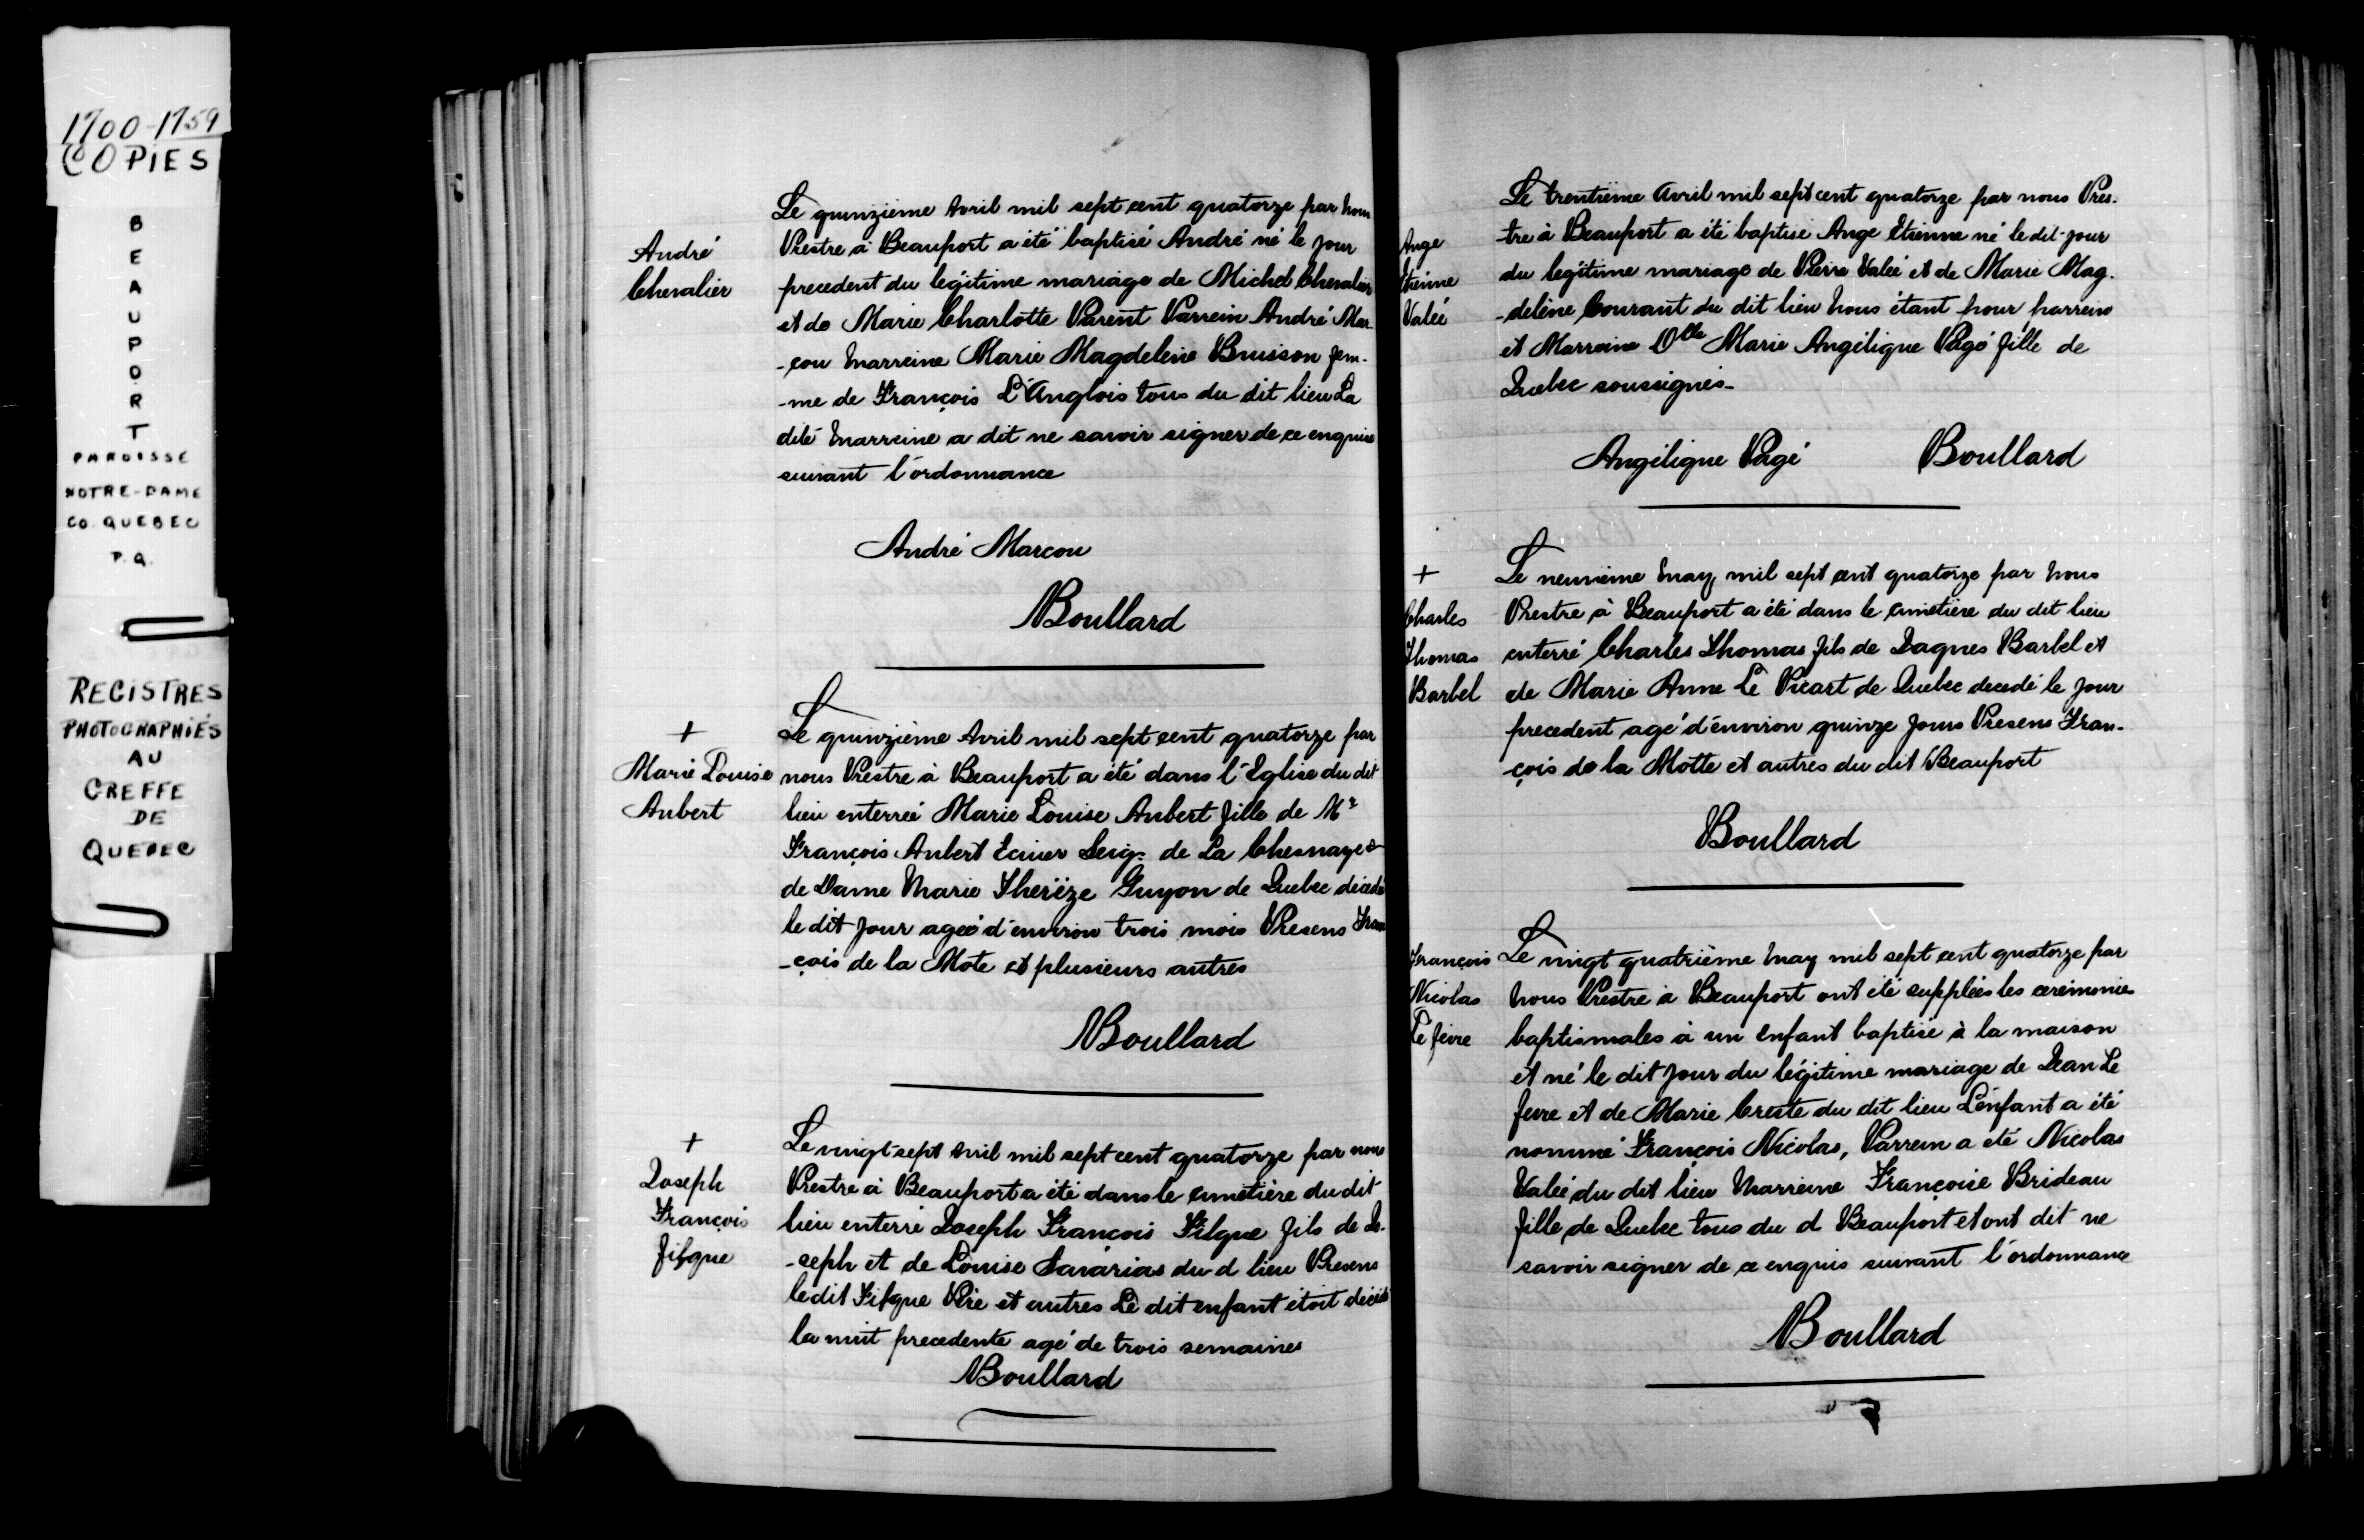 1700-1759
COPIES
B
E
A
U
P
O
R
T
PAROISSE
NOTRE-DAME
CO. QUEBEC
P.Q.
REGISTRES
PHOTOGRAPHIÉS
AU
GREFFE
DE
QUEBEC
André
Chevalier
Le quinzième Avril mil sept cent quatorze par nous
Prestre à Beauport a été baptisé André né le jour
precedent du légitime mariage de Michel Chevalier
et de Marie Charlotte Parent Parrein André Mar-
-çou marreine Marie Magdeleine Bruisson fem-
-me de François L'Anglois tous du dit lieu La
dite marreine a dit ne savoir signer de ce enquise
suivant l'ordonnance
André Marcou
Boullard
+
Marie Louise
Aubert
Le quinzième Avril mil sept cent quatorze par
nous Prestre à Beauport a été dans l'Eglise du dit
lieu enterreé Marie Louise Aubert fille de Mr
François Aubert Ecuier Seigr de La Chesnaye &
de Dame Marie Therèze Guyon de Quebec décedé
le dit jour ageé d'environ trois mois Presens Fran
-çois de la Mote et plusieurs autres
Boullard
+
Joseph
François
Filgue
Le vingt sept Avril mil sept cent quatorze par nous
Prestre à Beauport a été dans le cimetière du dit
lieu enterré Joseph François Filgue fils de Jo-
-seph et de Louise Savarias du d lieu Presens
le dit Filgue Père et autres Le dit enfant étoit décédé
la nuit precedente agé de trois semaines
Boullard
Ange
Etienne
Valeé
Le trentième Avril mil sept cent quatorze par nous Pres-
tre à Beauport a été baptisé Ange Etienne né le dit jour
du legitime mariage de Pierre Valeé et de Marie Mag-
-delène Courant du dit lieu nous étant pour parrein
et Marreine Dlle Marie Angélique Pagé fille de
Quebec soussignés-
Angélique Pagé Boullard
+
Charles
Thomas
Barbel
Le neuvième may mil sept cent quatorze par nous
Prestre à Beauport a été dans le cimetière du dit lieu
enterré Charles Thomas fils de Jaques Barbel et
de Marie Anne Le Picart de Quebec decedé le jour
precedent agé d'environ quinze jours Presens Fran-
çois de la Motte et autres du dit Beauport
Boullard
François
Nicolas
Le fevre
Le vingt quatrième may mil sept cent quatorze par
nous Prestre à Beauport ont été suppleés les ceremonies
baptismales à un enfant baptisé à la maison
et né le dit jour du légitime mariage de Jean Le
fevre et de Marie Creste du dit lieu L'enfant a été
nommé François Nicolas, Parrein a été Nicolas
Valeé du dit lieu Marreine Françoise Brideau
fille de Quebec tous du d Beauport et ont dit ne
savoir signer de ce enquis suivant l'ordonnance
Boullard